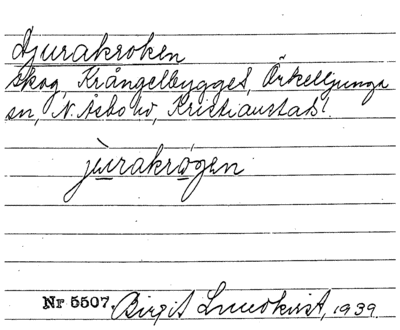 Djurakroken
skog, Krångelbygget, Örkelljunga
sn, N. Åsbo hd, Kristianstads l.
jùrakrógen
Nr 5507. Birgit Lundkvist, 1939.